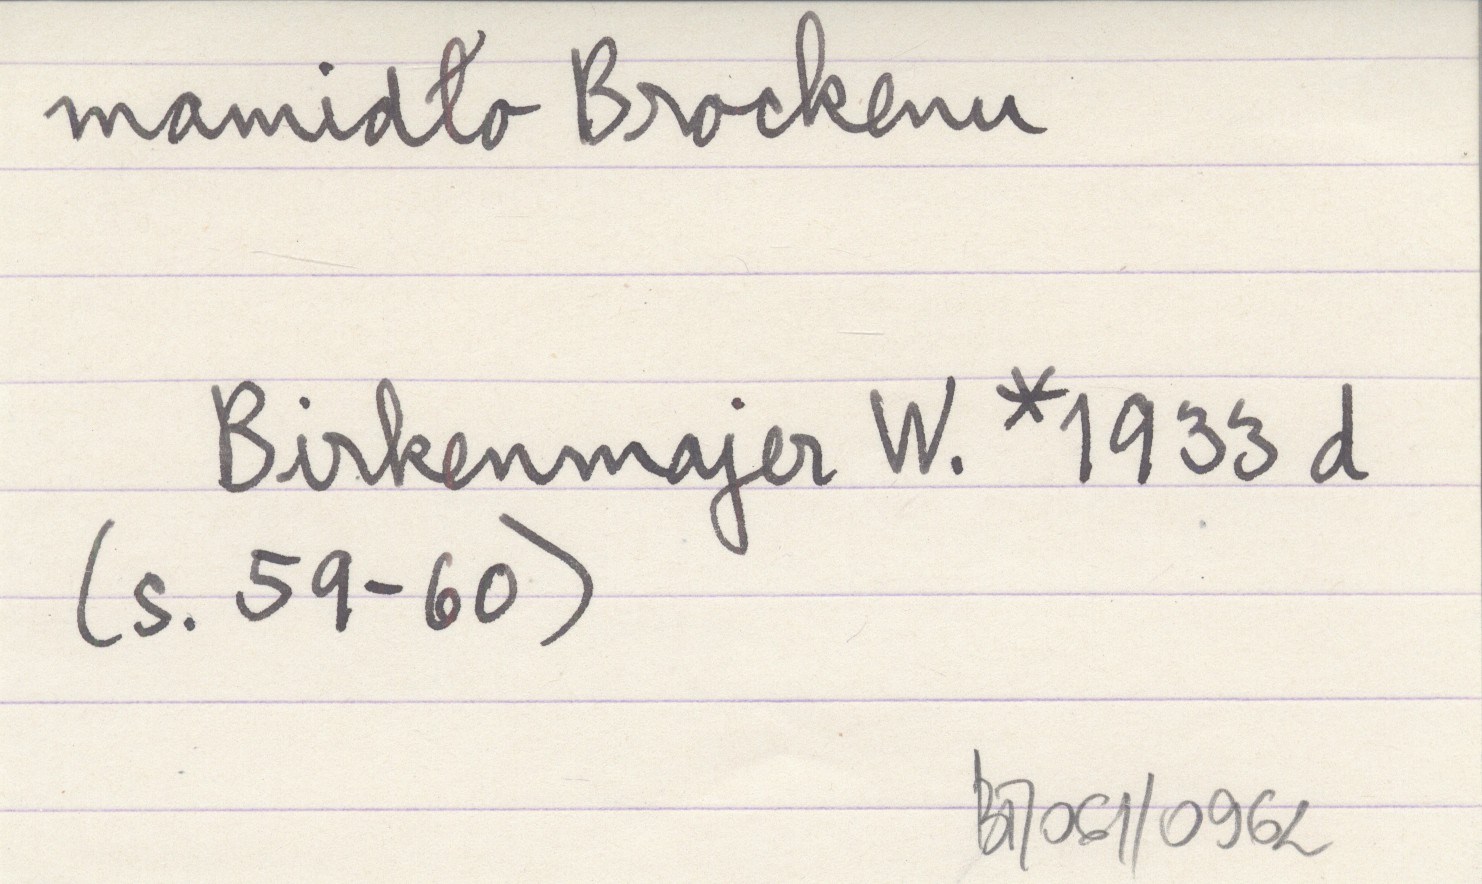 mamidło Brockenu
Birkenmajer W. *1933 d
(s. 59-60)